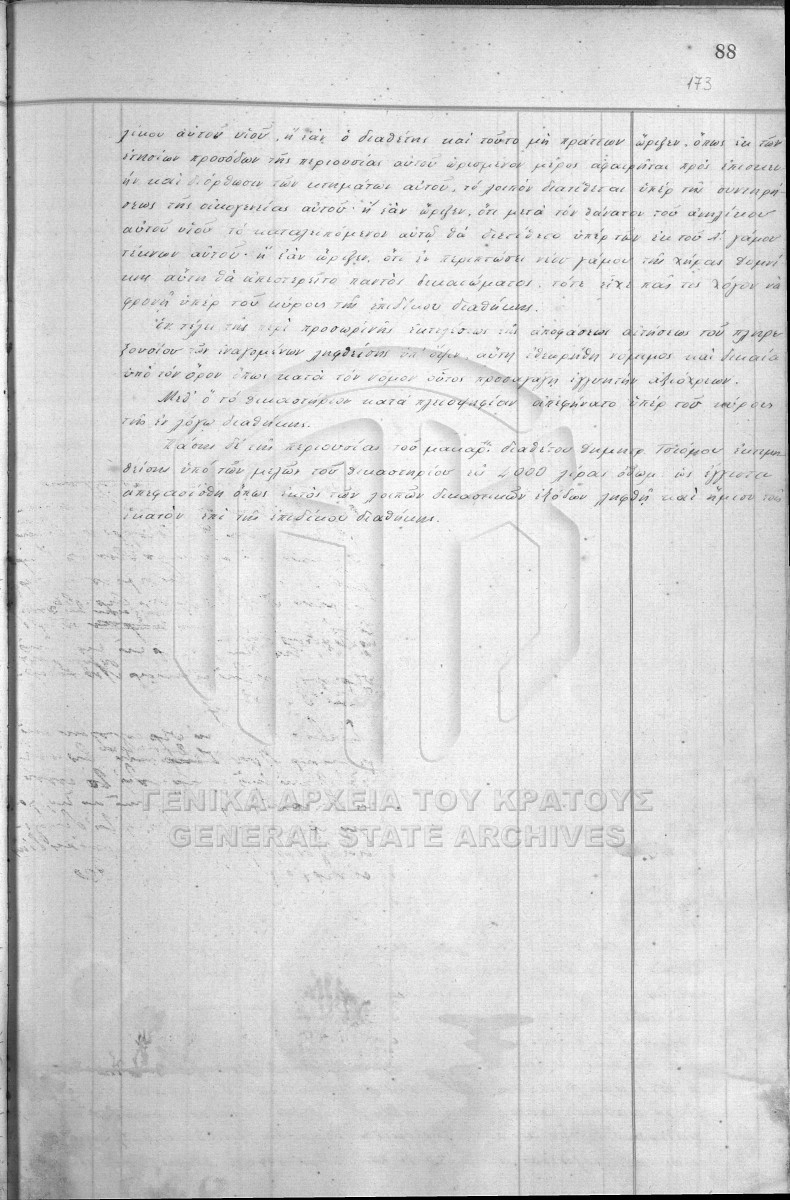 88
173
λίκου αὐτοῦ υἱοῦ, ἢ ἐὰν ὁ διαθέτης καὶ τοῦτο μὴ πράττων ὥριζεν, ὅπως ἐκ τῶν
ἐτησίων προσόδων τῆς περιουσίας αὐτοῦ ὡρισμένον μέρος ἀφαιρῆται πρὸς ἐπισκευ
ὴν καὶ διόρθωσιν τῶν κτημάτων αὐτοῦ, τὸ λοιπὸν διατίθεται ὑπὲρ τῆς συντηρή-
σεως τῆς οἰκογενείας αὐτοῦ· ἢ ἐὰν ὥριζεν, ὅτι μετὰ τὸν θάνατον τοῦ ἀνηλίκου
αὐτοῦ υἱοῦ τὸ καταλειπόμενον αὐτῷ θὰ διετίθετο ὑπὲρ τῶν ἐκ τοῦ Α΄ γάμου
τέκνων αὐτοῦ· ἢ ἐὰν ὥριζεν, ὅτι ἐν περιπτώσει νέου γάμου τῆς χήρας Δομνί
κης αὕτη θὰ ἀπεστερεῖτο παντὸς δικαιώματος, τότε εἶχε πᾶς τις λόγον νὰ
φρονῇ ὑπὲρ τοῦ κύρους τῆς ἐπιδίκου διαθήκης.
Ἐν τέλει τῆς περὶ προσωρινῆς ἐκτελέσεως τῆς ἀποφάσεως αἰτήσεως τοῦ πληρε
ξουσίου τῶν ἐναγομένων ληφθείσης ὑπ' ὄψιν, αὕτη ἐθεωρήθη νόμιμος καὶ δικαία
ὑπὸ τὸν ὅρον ὅπως κατὰ τὸν νόμον οὗτος προσαγάγῃ ἐγγυητὴν ἀξιόχρεων.
Μεθ' ὃ τὸ δικαστήριον κατὰ πλειοψηφίαν ἀπεφήνατο ὑπὲρ τοῦ κύρους
τῆς ἐν λόγῳ διαθήκης.
Πάσης δὲ τῆς περιουσίας τοῦ μακαρ. διαθέτου Δημητρ. Τσιόμου ἐκτιμη
θείσης ὑπὸ τῶν μελῶν τοῦ δικαστηρίου εἰς 4000 λίρας ὀθωμ. ὡς ἔγγιστα
ἀπεφασίσθη ὅπως ἐκτὸς τῶν λοιπῶν δικαστικῶν ἐξόδων ληφθῇ καὶ ἥμισυ τοῖς
ἑκατὸν ἐπὶ τῆς ἐπιδίκου διαθήκης.
ΓΕΝΙΚΑ ΑΡΧΕΙΑ ΤΟΥ ΚΡΑΤΟΥΣ
GENERAL STATE ARCHIVES